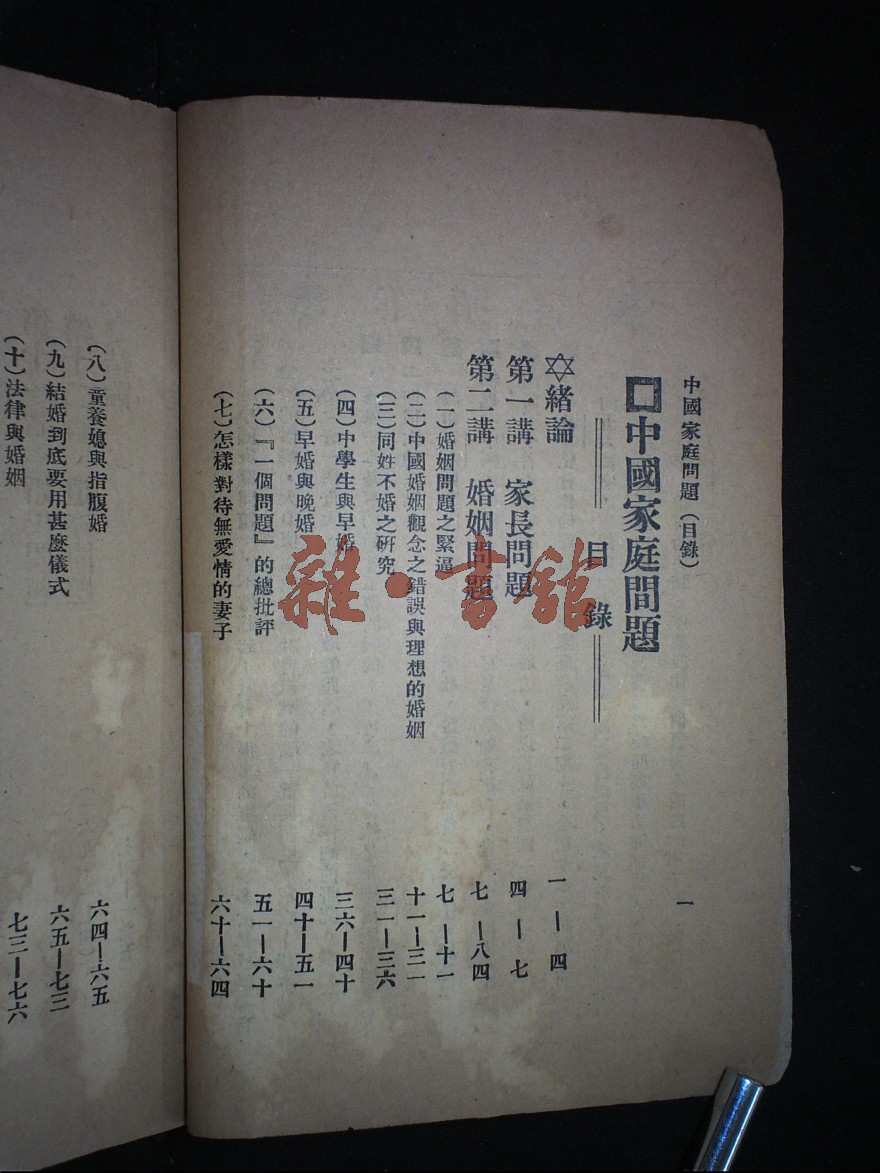 中國家庭問題（目錄）
一
中國家庭問題
目錄
緒論 一—四
第一講 家長問題 四—七
第二講 婚姻問題 七—八四
（一）婚姻問題之緊逼 七—十一
（二）中國婚姻觀念之錯誤與理想的婚姻 十一—三一
（三）同姓不婚之研究 三一—三六
（四）中學生與早婚 三六—四十
（五）早婚與晚婚 四十—五一
（六）『一個問題』的總批評 五一—六十
（七）怎樣對待無愛情的妻子 六十—六四
（八）童養媳與指腹婚 六四—六五
（九）結婚到底要用甚麼儀式 六五—七三
（十）法律與婚姻 七三—七六
雜·書館